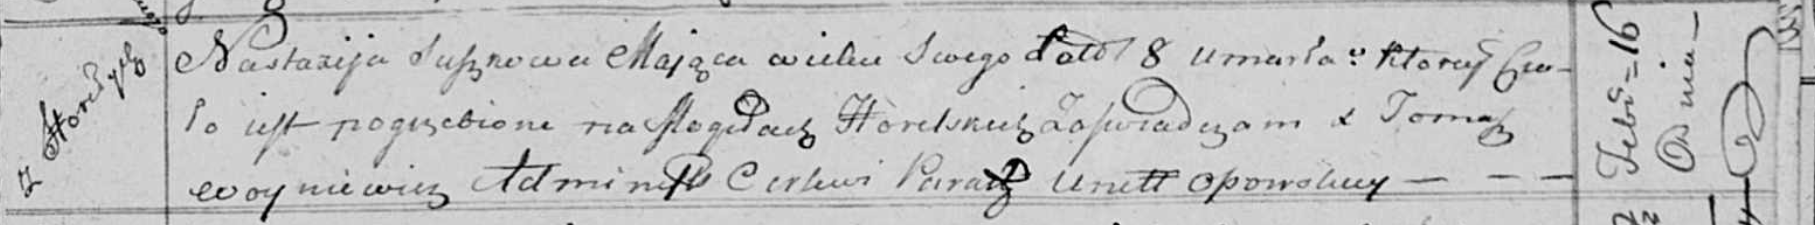 z Horełych
Nastazija Suszkowa Mająca wieku Swego Latt 8 umarła: ktorey Cia-
ło iest pogrzebione na Mogiłach Horelskich Zaświadczam X Tomasz
Woyniewicz Administr Cerkwi Parach Unitt Opowskiey — — —
Febr = 16
Dnia —